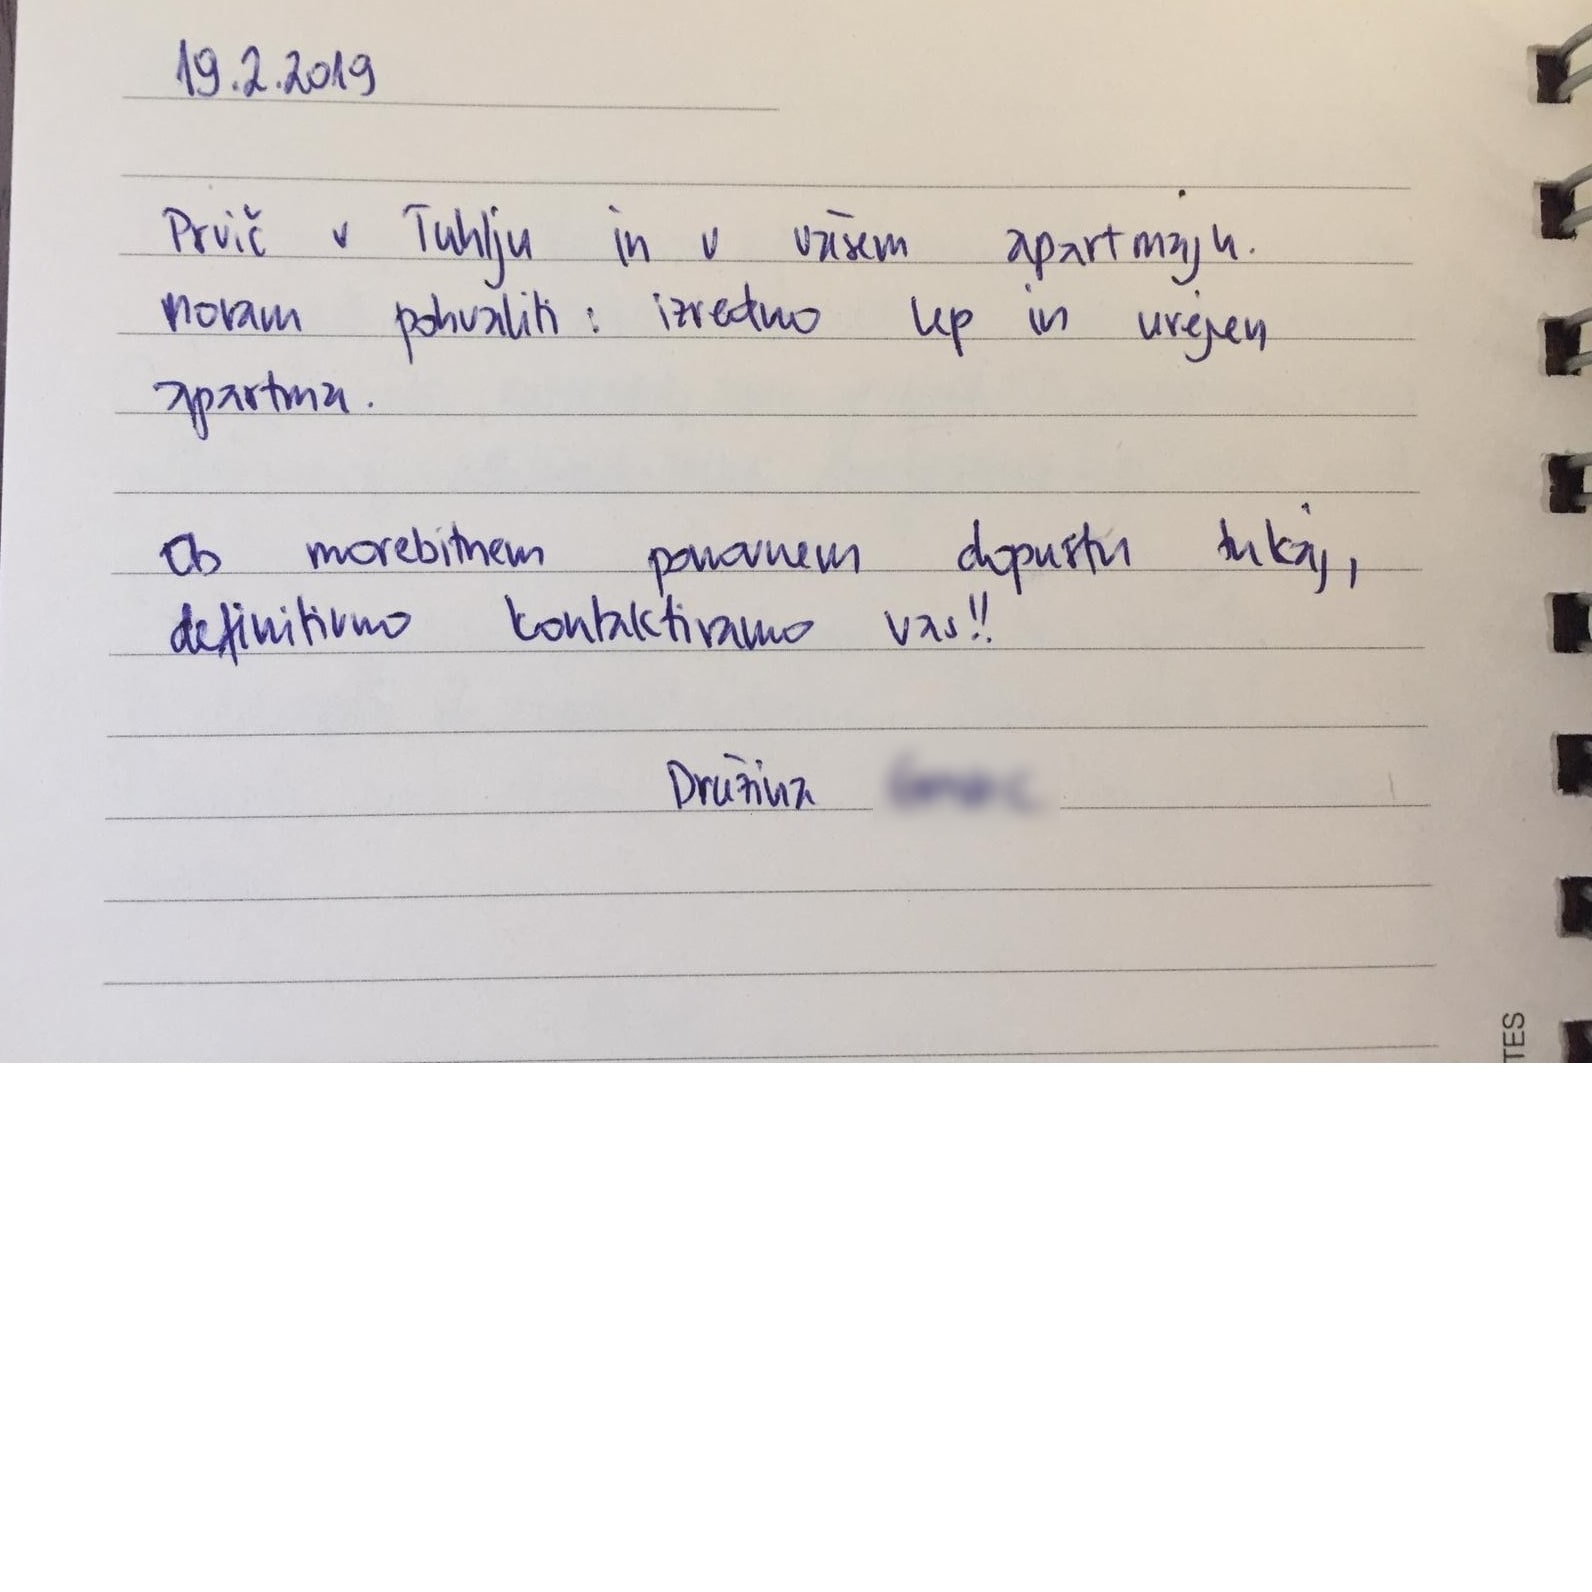 19.2.2019
Prvič v Tuhlju in v vašem apartmaju.
Moram pohvaliti: izredno lep in urejen
apartma.
Ob morebitnem ponovnem dopustu tukaj,
definitivno kontaktiramo vas!!
Družina
TES